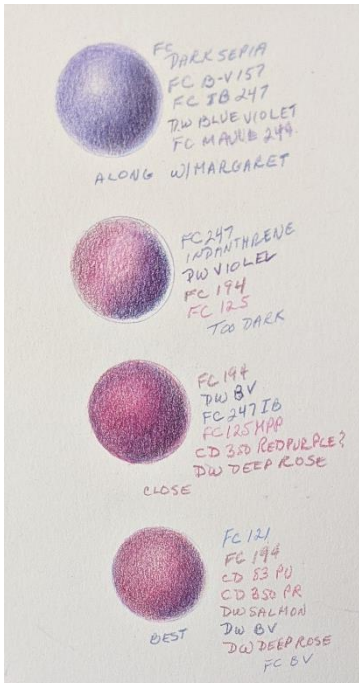 FC
DARK SEPIA
FC B-V 157
FC IB 247
DW BLUE VIOLET
FC MAUVE 249
ALONG W/MARGARET
FC 247
INDANTHRENE
DW VIOLET
FC 194
FC 125
TOO DARK
FC 194
DW BV
FC 247 IB
FC 125 MPP
CD 350 RED PURPLE?
DW DEEP ROSE
CLOSE
FC 121
FC 194
CD 83 PU
CD 350 PR
DW SALMON
DW BV
DW DEEP ROSE
FC BV
BEST